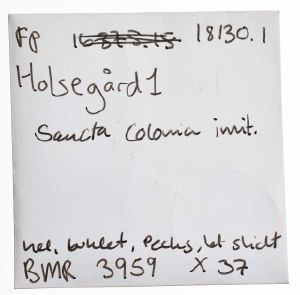 FP 16873.15 18130.1
Holsegård 1
Sancta Colonia imit.
hel, buklet,
BMR 3959 X 37